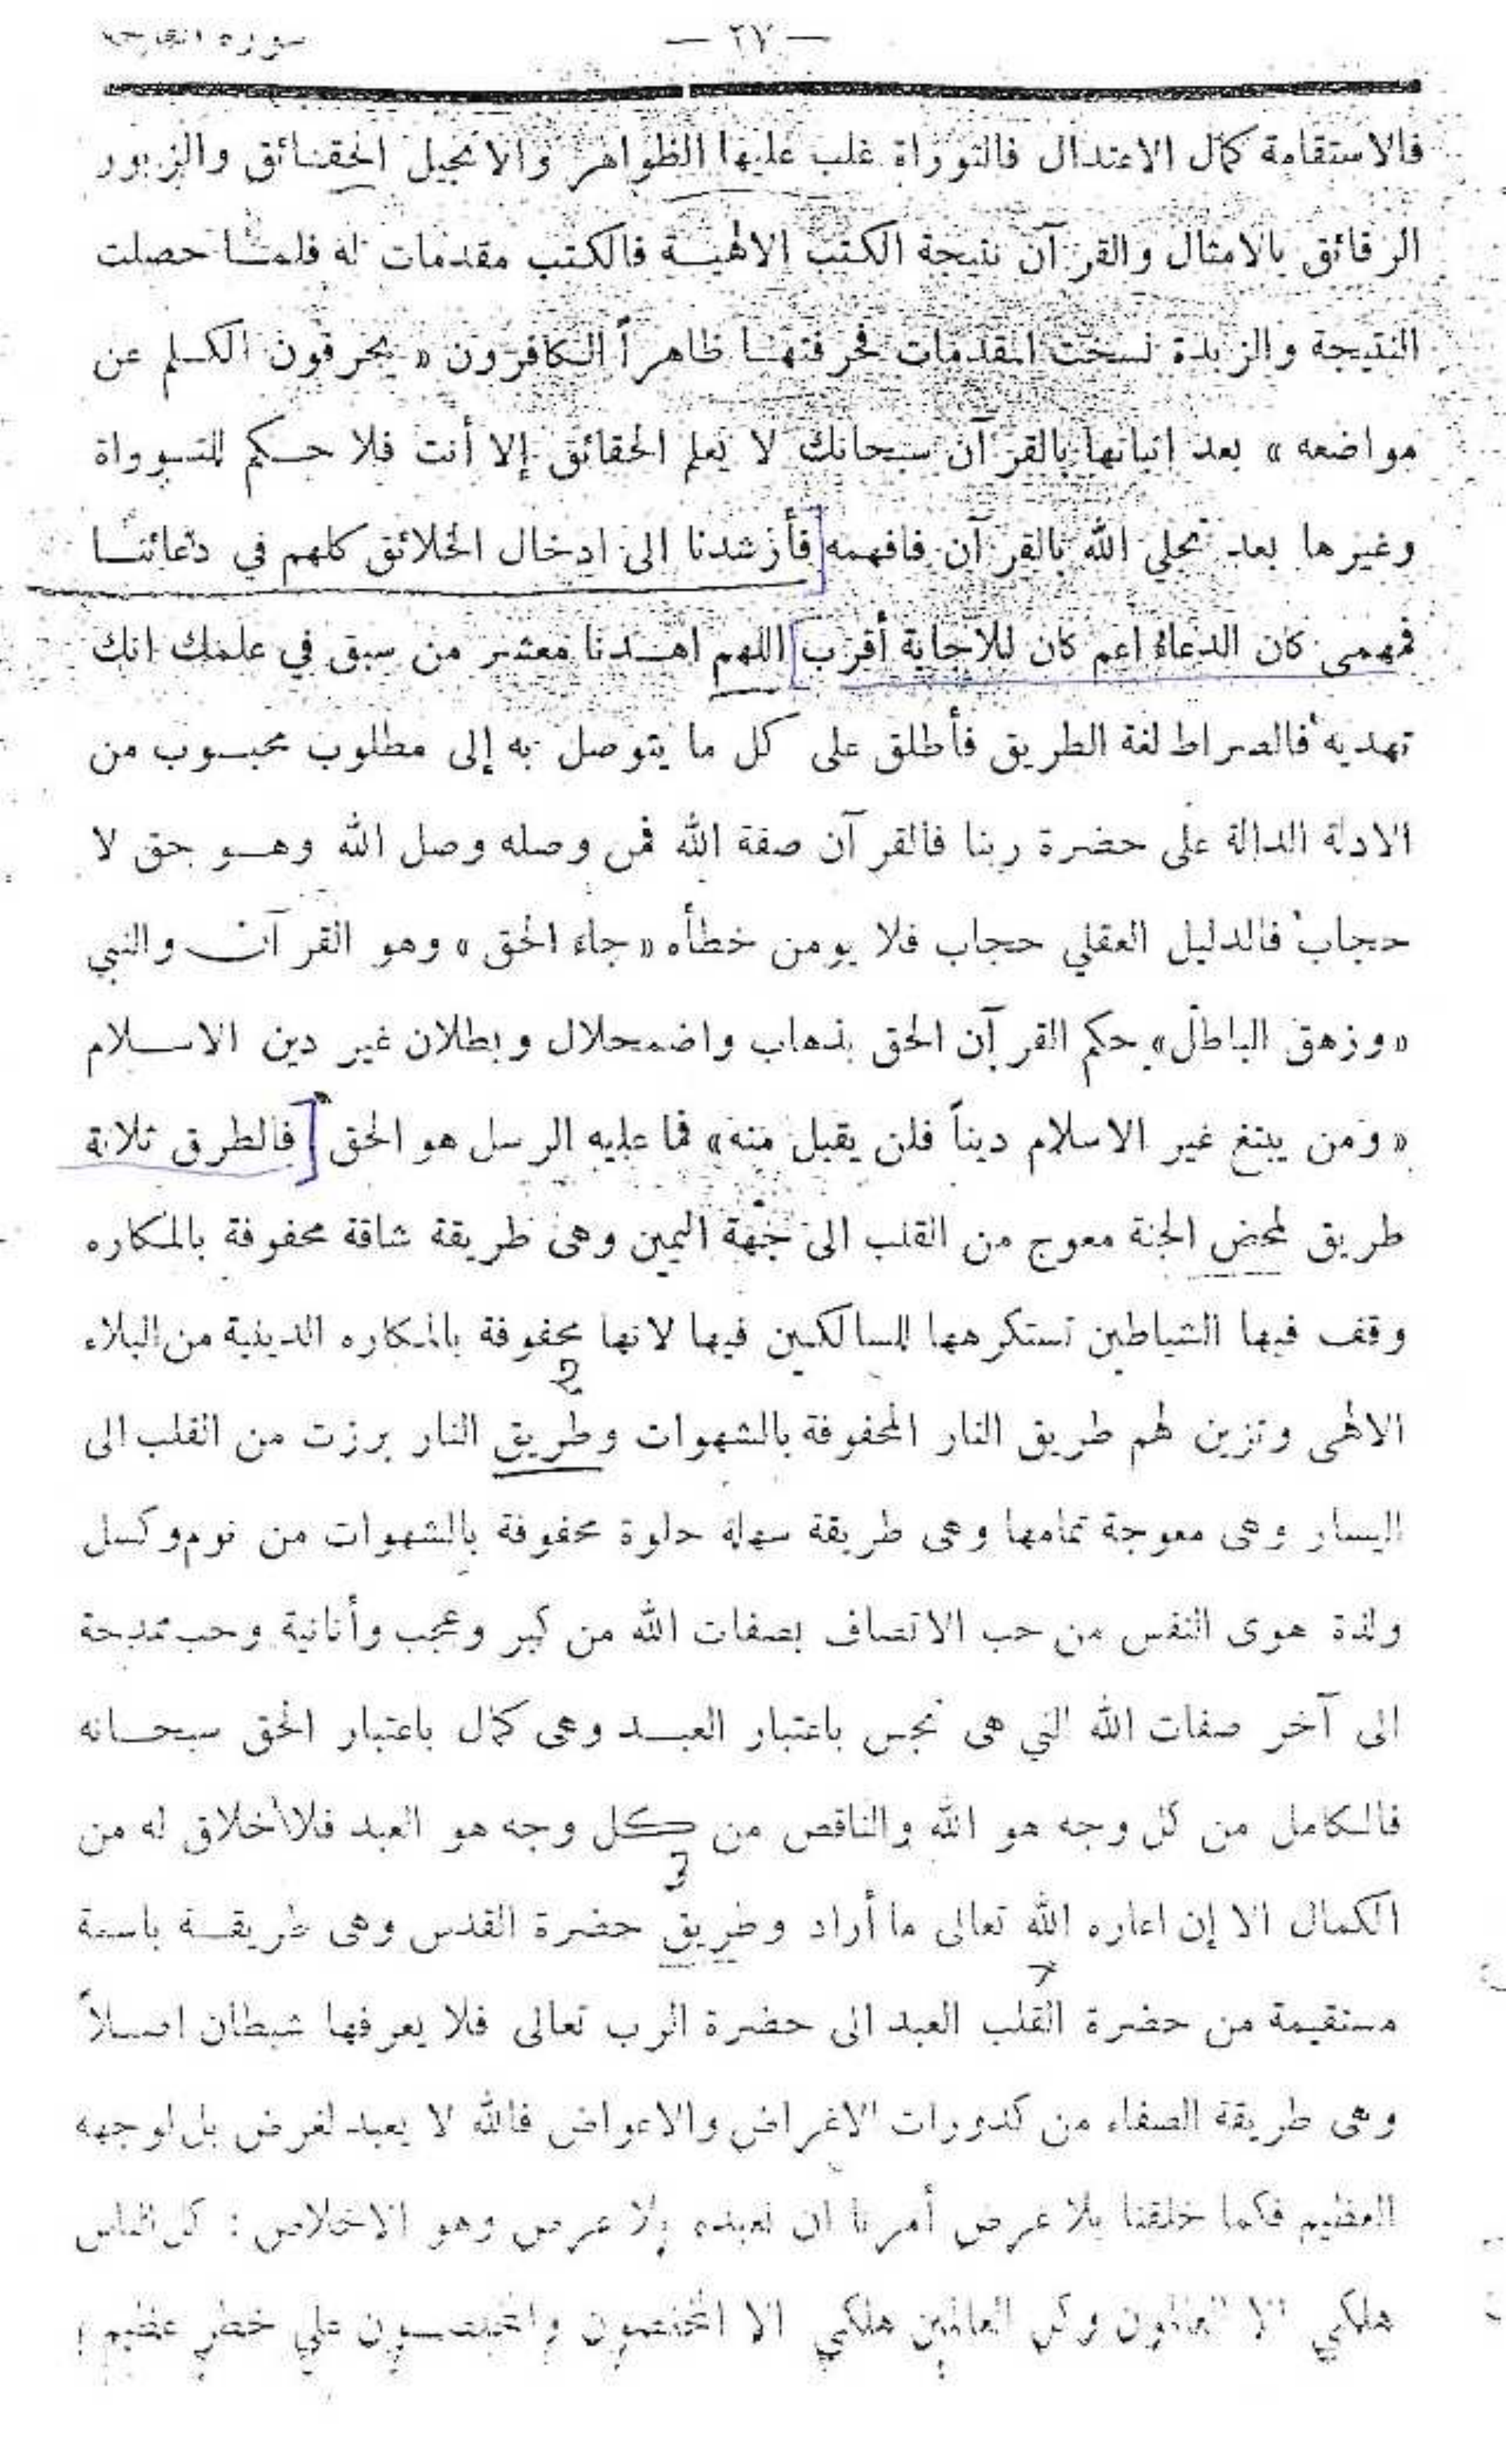 — ٢٧ — سورة الفاتحة
فالاستقامة كمال الاعتدال فالتوراة غلب عليها الظواهر والانجيل الحقائق والزبور
الرقائق بالامثال والقرآن نتيجة الكتب الالهية فالكتب مقدمات له فلما حصلت
النتيجة والزبدة نسخت المقدمات فحرفتها ظاهراً الكافرون « يحرفون الكلم عن
مواضعه » بعد اتيانها بالقرآن سبحانك لا يعلم الحقائق إلا أنت فلا حكم للتوراة
وغيرها بعد تجلي الله بالقرآن فافهمه [فأرشدنا الى ادخال الخلائق كلهم في دعائنا
فمهمى كان الدعاء اعم كان للاجابة أقرب] اللهم اهدنا معشر من سبق في علمك انك
تهديه فالصراط لغة الطريق فأطلق على كل ما يتوصل به إلى مطلوب محبوب من
الادلة الدالة على حضرة ربنا فالقرآن صفة الله فمن وصله وصل الله وهو حق لا
حجاب فالدليل العقلي حجاب فلا يومن خطأه « جاء الحق » وهو القرآن والنبي
« وزهق الباطل » حكم القرآن الحق بذهاب واضمحلال وبطلان غير دين الاسلام
« ومن يبتغ غير الاسلام ديناً فلن يقبل منه » فما عليه الرسل هو الحق [فالطرق ثلاثة
طريق لمحض الجنة معوج من القلب الى جهة اليمين وهى طريقة شاقة محفوفة بالمكاره
وقف فيها الشياطين تستكرهها للسالكين فيها لانها محفوفة بالمكاره الدينية من البلاء
2
الالاهى وتزين لهم طريق النار المحفوفة بالشهوات وطريق النار برزت من القلب الى
اليسار وهى معوجة تمامها وهى طريقة سهلة حلوة محفوفة بالشهوات من نوم وكسل
ولذة هوى النفس من حب الاتصاف بصفات الله من كبر وعجب وأنانية وحب تمدحة
الى آخر صفات الله التي هى نجس باعتبار العبد وهى كمال باعتبار الحق سبحانه
فالكامل من كل وجه هو الله والناقص من كل وجه هو العبد فلا أخلاق له من
3
الكمال الا إن اعاره الله تعالى ما أراد وطريق حضرة القدس وهى طريقة باسمة
مستقيمة من حضرة القلب العبد الى حضرة الرب تعالى فلا يعرفها شيطان اصلاً
وهى طريقة الصفاء من كدورات الاغراض والاعواض فالله لا يعبد لغرض بل لوجهه
العظيم فكما خلقنا بلا غرض أمرنا ان نعبده بلا غرض وهو الاخلاص : كل الناس
هلكى الا العالمون وكل العالمين هلكى الا المخلصون والمخلصون على خطر عظيم